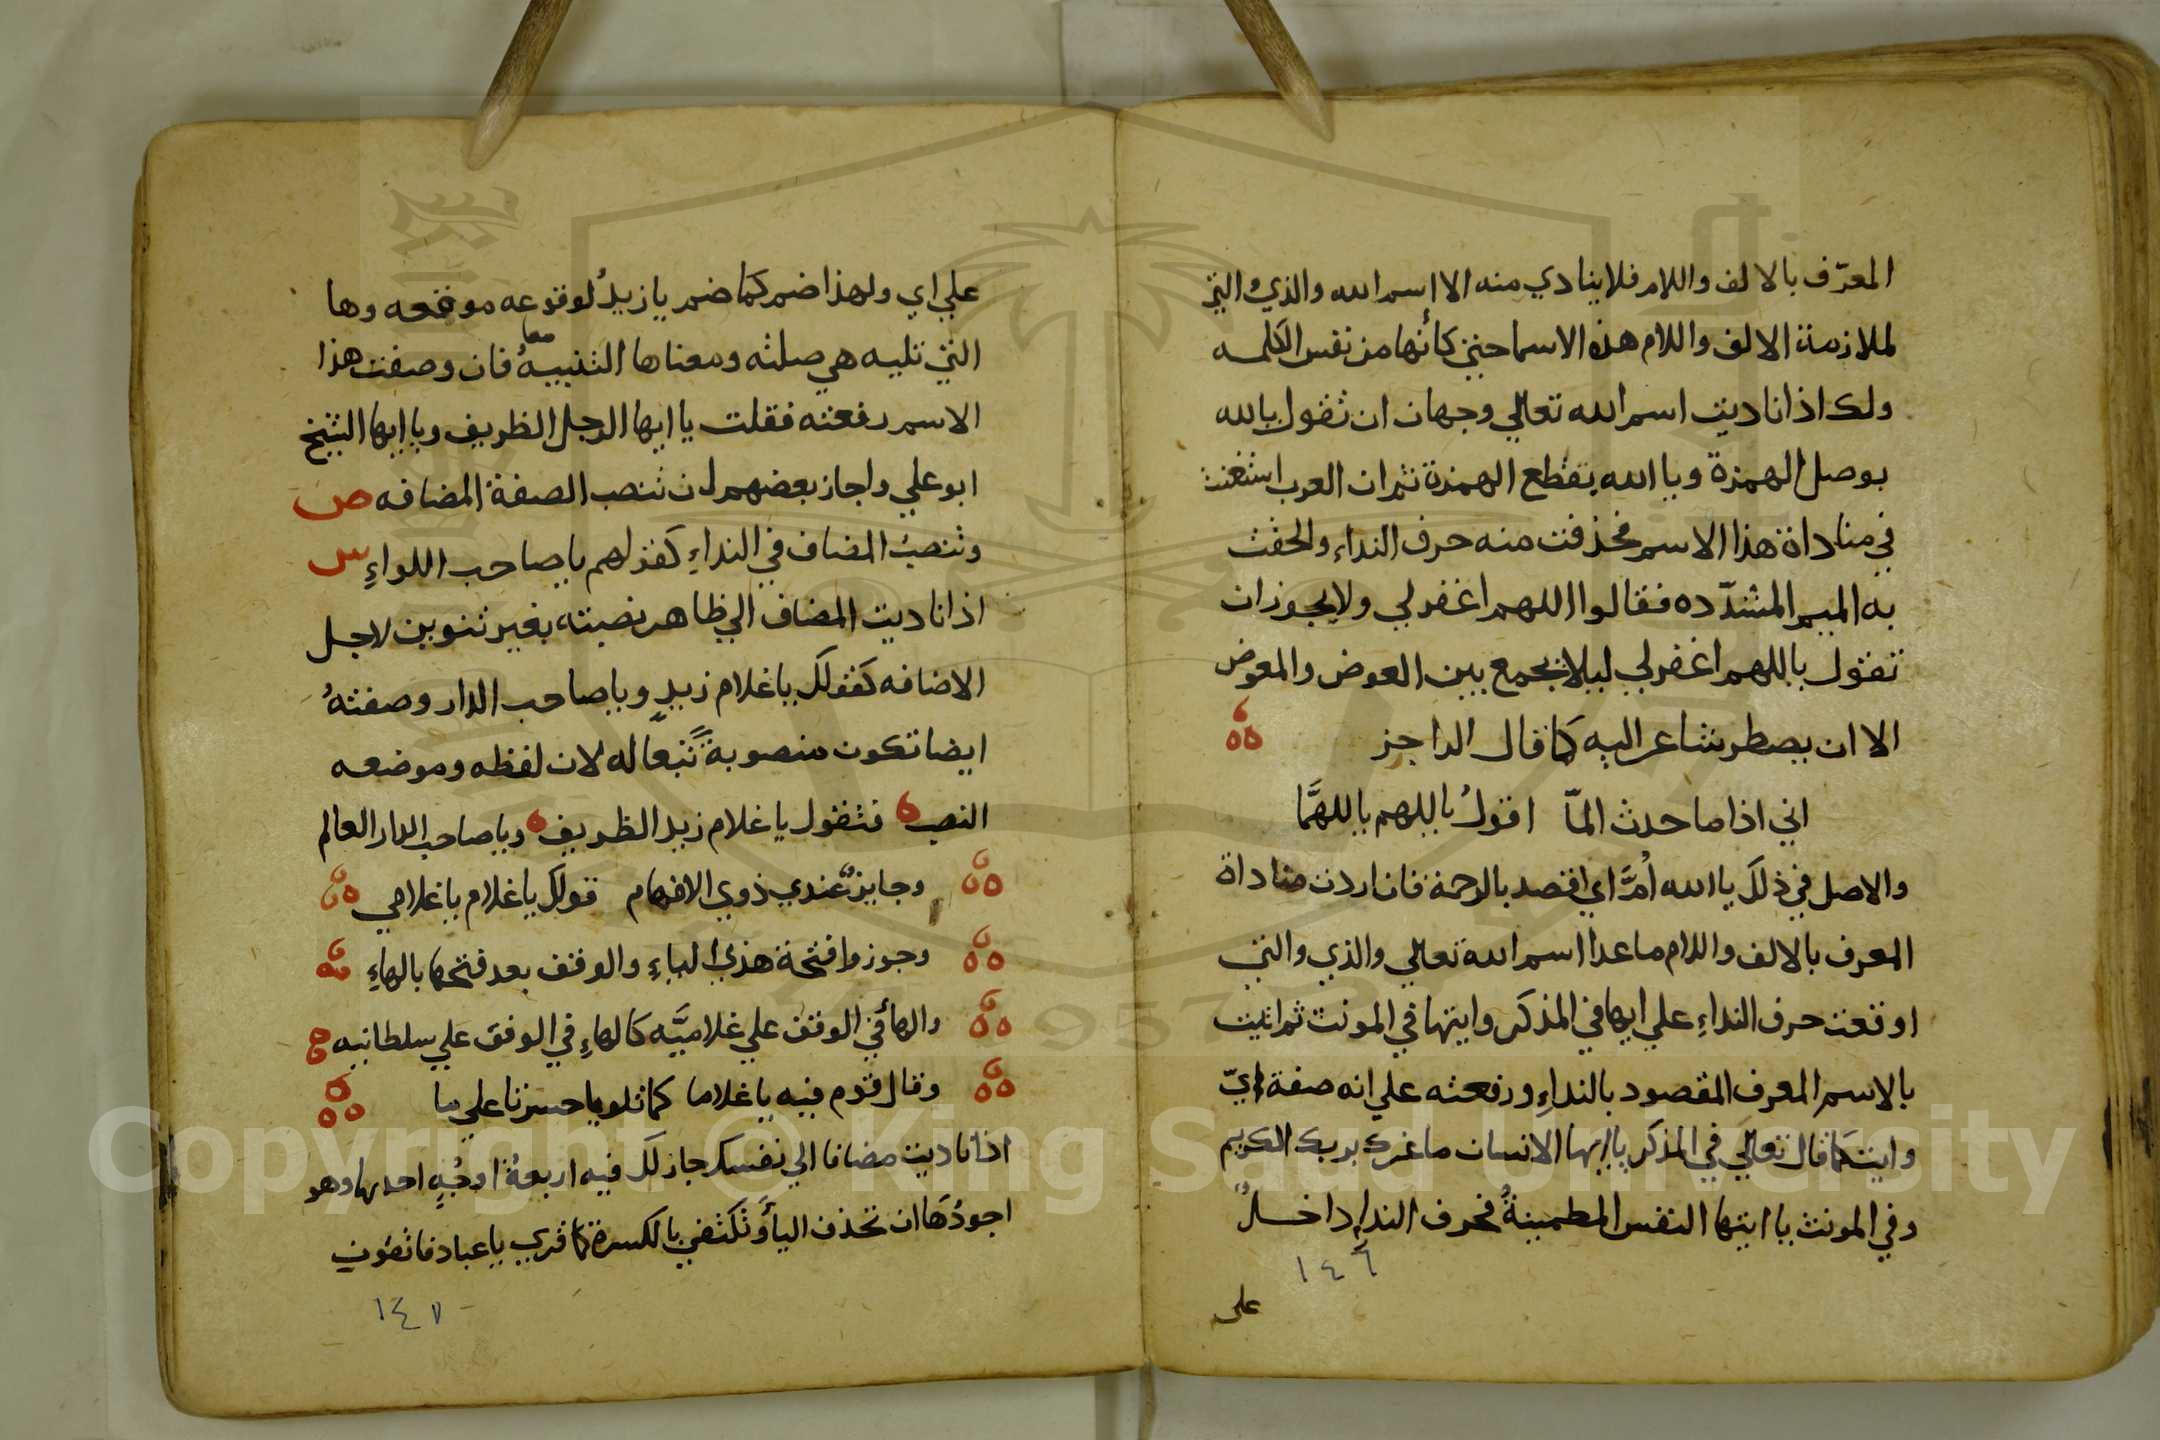 المعرّف بالالف واللام فلا ينادي منه الا اسم الله والذي والتي
لملازمة الالف واللام هذه الاسما حتي كأنها من نفس الكلمه
ولك اذا ناديت اسم الله تعالي وجهان ان تقول يالله
بوصل الهمزة ويا الله بقطع الهمزة ثم ان العرب استغنت
في مناداة هذا الاسم فحذفت منه حرف النداء والحقت
به الميم المشدّده فقالوا اللهم اغفر لي ولا يجوز ان
تقول ياللهم اغفر لي ليلا تجمع بين العوض والمعوض
الا ان يضطر شاعر اليه كما قال الراجز
اني اذا ما حدث المّا اقولُ ياللهم ياللهمَّا
والاصل في ذلك يا الله اُمَّ اي اقصد بالرحمة فان اردت مناداة
المعرف بالالف واللام ما عدا اسم الله تعالي والذي والتي
اوقعت حرف النداءِ علي ايها في المذكر وايتها في المونث ثم اتيت
بالاسم المعرف المقصود بالنداءِ ورفعته علي انه صفة ايّ
وايت كما قال تعالي في المذكر يا ايها الانسان ما غرك بربك الكريم
وفي المونث يا ايتها النفس المطمينةُ فحرف النداءِ داخلٌ
١٤٦
على
علي اي ولهذا ضم كما ضم يا زيدُ لوقوعه موقعه وها
التي تليه هي صلته ومعناها التنبيهُ فان وصفت هذا
الاسم رفعته فقلت يا ايها الرجل الظريف ويا ايها الشيخ
ابو علي واجاز بعضهم ان تنصب الصفة المضافه ص
وتنصب المضاف في النداءِ كقولهم يا صاحب اللواءِ س
اذا ناديت المضاف الي ظاهر نصبته بغير تنوين لاجل
الاضافه كقولك يا غلام زيدٍ ويا صاحب الدار وصفتهُ
ايضا تكون منصوبةً تبعًا له لان لفظه وموضعه
النصب فتقول يا غلام زيد الظريف ويا صاحب الدار العالم
وجايزٌ عندي ذوي الافهام قولك يا غلام يا غلامي
وجوزوا فتحة هذي الياءِ والوقف بعد فتحها بالهاءِ
والهاُ في الوقف علي غلاميَّه كالهاءِ في الوقف علي سلطانيه
وقال قوم فيه يا غلاما كما تلو يا حسرتا علي ما
اذا ناديت مضافا الي نفسك جاز لك فيه اربعةُ اوجُهٍ احدها وهو
اجودُهَا ان تحذف اليأَ وتكتفي بالكسرة كما قري يا عباد فاتقون
١٤٧